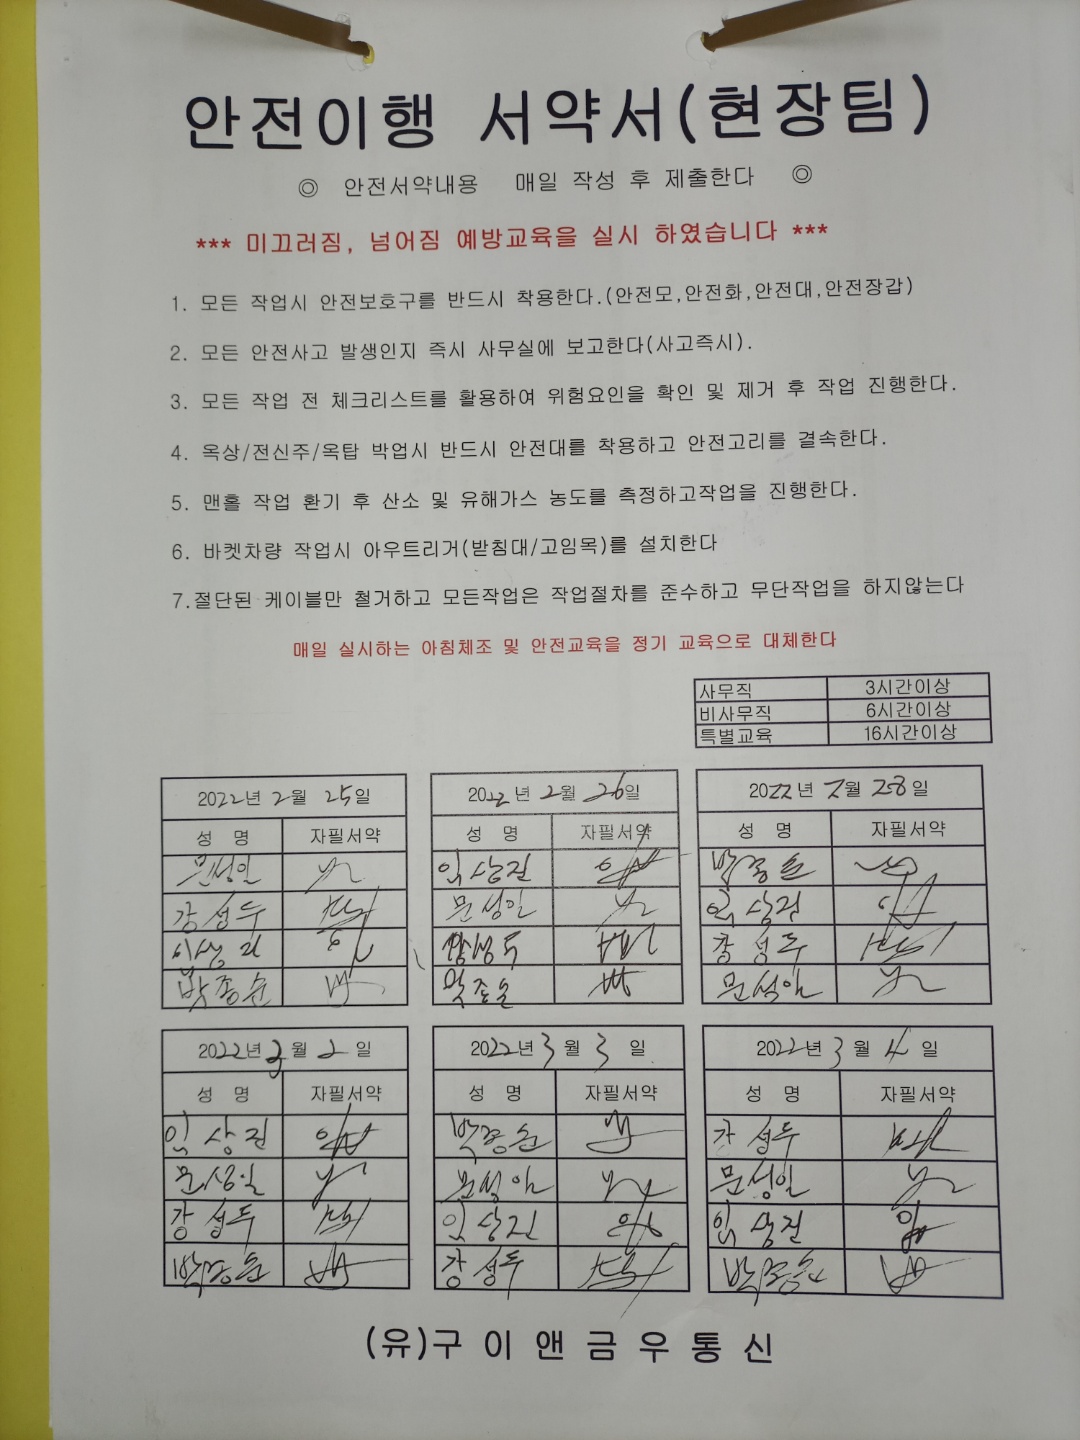 안전이행 서약서(현장팀)
◎ 안전서약내용 매일 작성 후 제출한다 ◎
*** 미끄러짐, 넘어짐 예방교육을 실시 하였습니다 ***
1. 모든 작업시 안전보호구를 반드시 착용한다.(안전모,안전화,안전대,안전장갑)
2. 모든 안전사고 발생인지 즉시 사무실에 보고한다(사고즉시).
3. 모든 작업 전 체크리스트를 활용하여 위험요인을 확인 및 제거 후 작업 진행한다.
4. 옥상/전신주/옥탑 박업시 반드시 안전대를 착용하고 안전고리를 결속한다.
5. 맨홀 작업 환기 후 산소 및 유해가스 농도를 측정하고작업을 진행한다.
6. 바켓차량 작업시 아우트리거(받침대/고임목)를 설치한다
7.절단된 케이블만 철거하고 모든작업은 작업절차를 준수하고 무단작업을 하지않는다
매일 실시하는 아침체조 및 안전교육을 정기 교육으로 대체한다
사무직 3시간이상
비사무직 6시간이상
특별교육 16시간이상
2022년 2월 25일
성 명 자필서약
문성일
강성두
박종순
2022년 2월 26일
성 명 자필서약
임상진
문성일
2022년 2월 28일
성 명 자필서약
박종순
임상진
강성두
문성일
2022년 3월 2일
성 명 자필서약
임상진
문성일
강성두
박종순
2022년 3월 3일
성 명 자필서약
박종순
문성일
임상진
강성두
2022년 3월 4일
성 명 자필서약
강성두
문성일
임상진
박종순
(유)구이앤금우통신